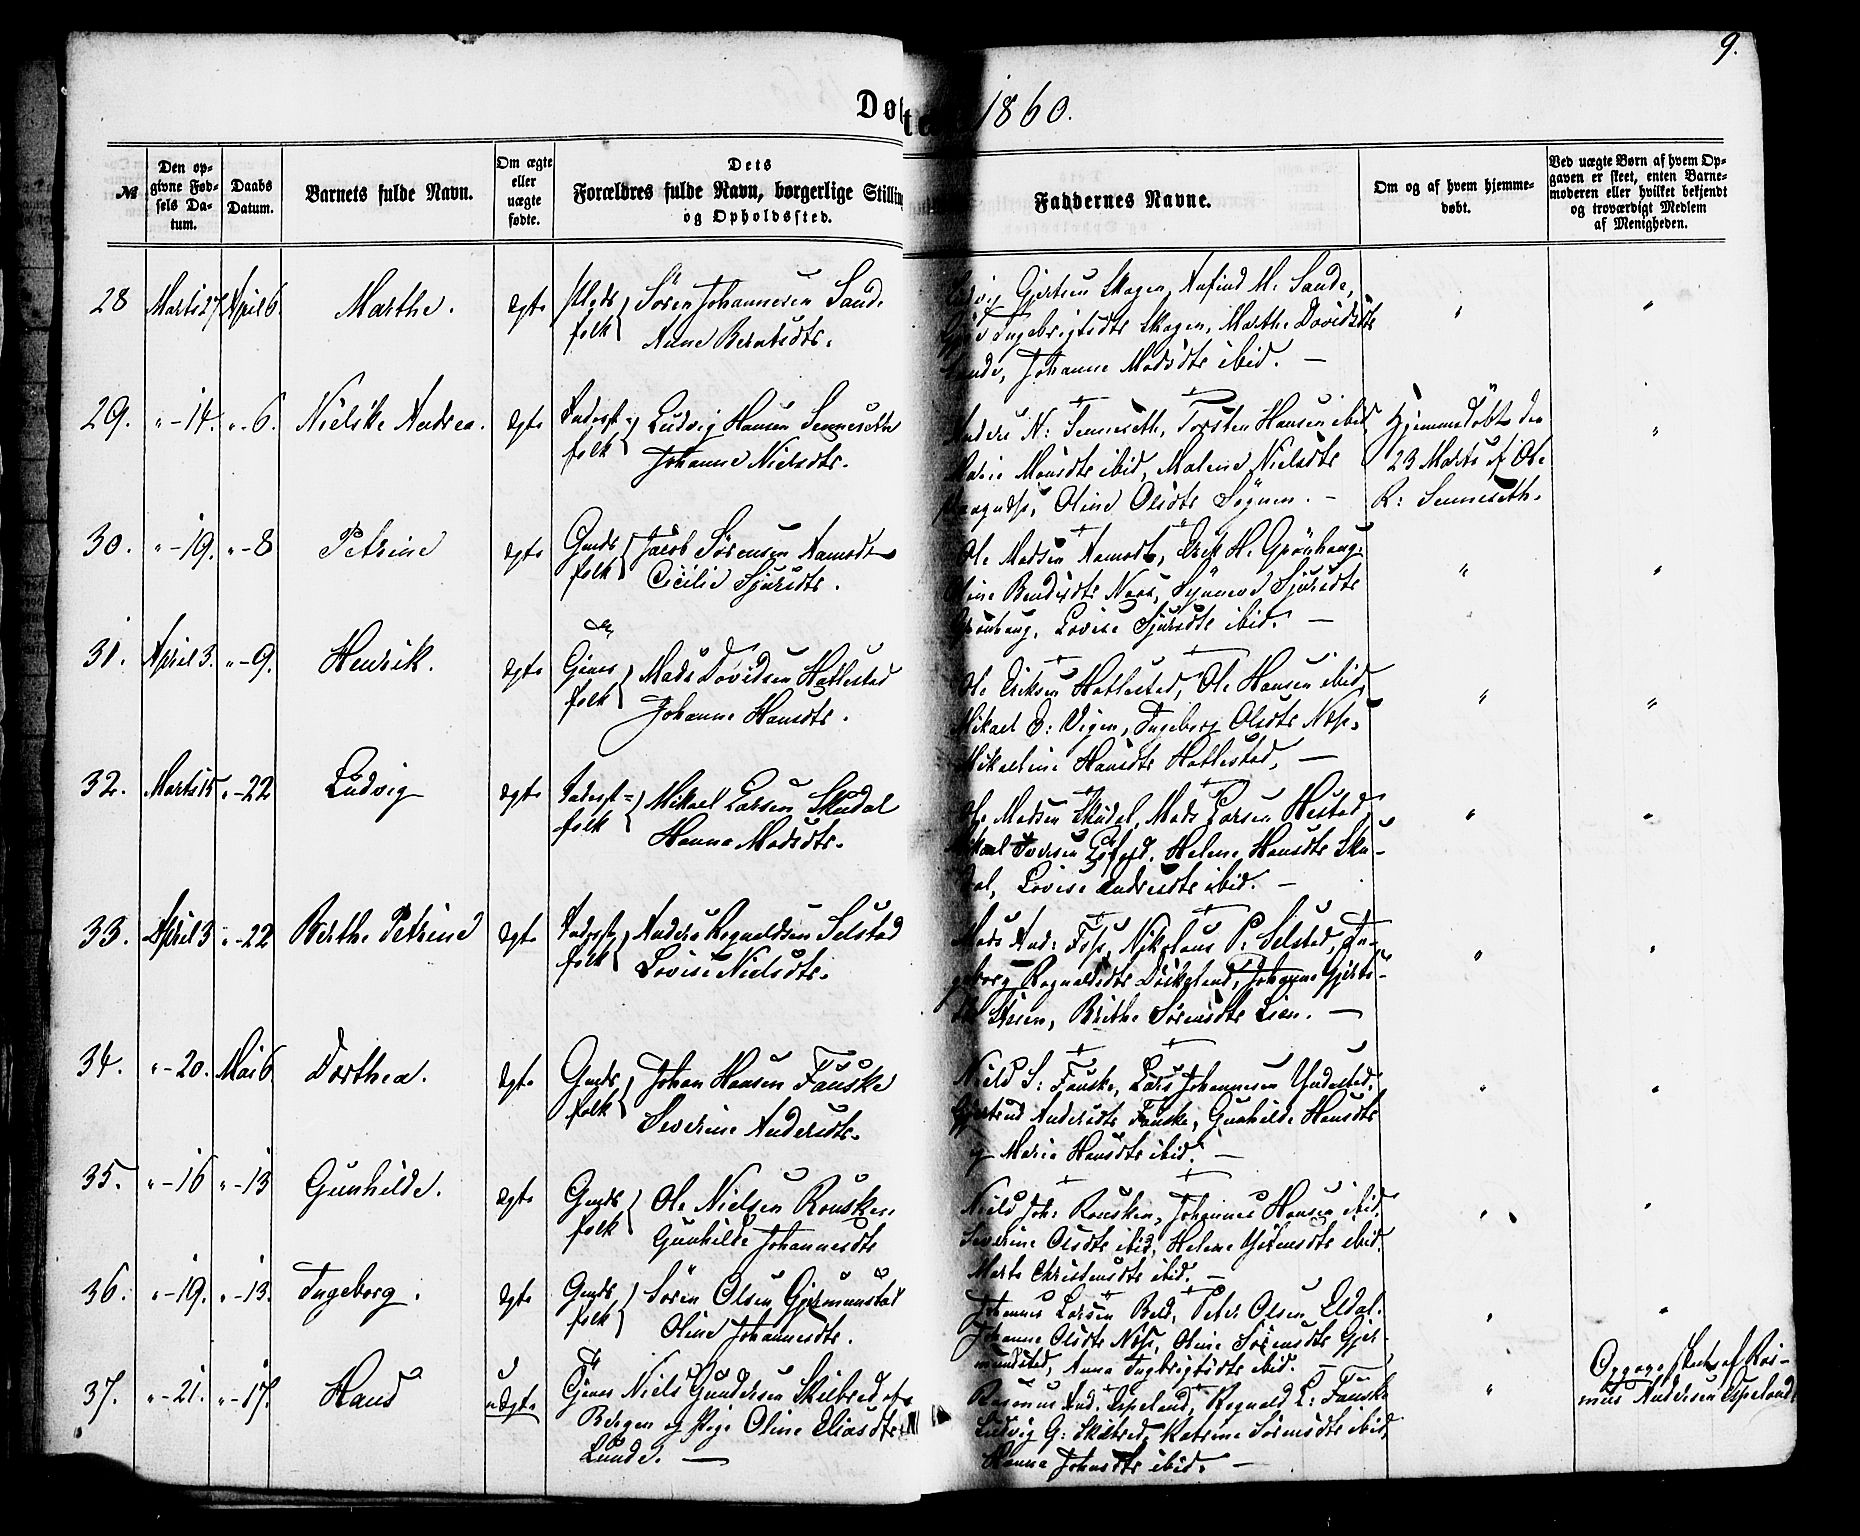 9.
Døbte 1860.
№
Den opgivne Fødsels Datum.
Daabs Datum.
Barnets fulde Navn.
Om ægte eller uægte fødte.
Dets Forældres fulde Navn, borgerlige Stilling og Opholdssted.
Faddernes Navne.
Om og af hvem hjemmedøbt.
Ved uægte Børn af hvem Opgaven er skeet, enten Barnemoderen eller hvilket bekjendt og troværdigt Medlem af Menigheden.
28 Marts 27 April 6. Marthe. ægte Søren Johannesen Sande
folk Anne Berntsdtr.
Gjertsen Skagen, M. Sande,
Ingebrigtsdtr Skagen, Marthe Davidsdtr
Sande, Johanne Madsdtr ibid. —
" "
29. "-14. "-6. Nielske Andrea. ægte Ludvig Hansen Senneseth
folk Johanne Nielsdtr.
Anders N: Senneseth, Torsten Hansen ibid
Monsdtr ibid, Malene Nielsdtr
Oline Olsdtr —
Hjemmedøbt den
23 Marts af Ole
R: Senneseth.
"
30. "-19. "-8 Petrine ægte Gmds Jacob Sørensen Aamodt
folk Cicilie Sjursdtr.
Ole Madsen Aamodt, Erik H. Grønhaug
Bendixdtr Synneve Sjursdtr
Grønhaug, Lovise Sjursdtr ibid. —
" "
31. April 3. "-9. Henrik. ægte Mads Davidsen Hatlestad
folk Johanne Hansdtr.
Ole Eriksen Hatlestad, Ole Hansen ibid
Mikael E: Vigen, Ingeborg Olsdtr
Mikaeline Hansdtr Hatlestad, —
" "
32. Marts 15 "-22 Ludvig ægte Mikael Larsen Skudal
folk Hanna Madsdtr.
Ole Madsen Skudal, Mads Larsen Hestad,
Mikael Iversen Helene Hansdtr Sku-
dal, Lovise Andersdtr ibid. —
" "
33. April 3 "-22 Berthe Petrine ægte Anders Rognaldsen Selstad
folk Lovise Nielsdtr.
Mads And: Foss, Nikolaus P: Selstad, In-
geborg Rognaldsdtr Johanne Gjerts-
Brithe Sørensdtr Lien. —
" "
34. "-20. Mai 6 Dorthea. ægte Gmds Johan Hansen Fauske
folk Severine Andersdtr.
Niels S: Fauske, Lars Johannesen Yndestad,
Gjertrud Andersdtr Fauske, Gunhilde Hansdtr
og Maria Hansdtr ibid. —
" "
35. "-16 "-13 Gunhilde. ægte Gmds Ole Nielsen Rousken
folk Gunhilde Johannesdtr
Niels Joh: Rousken, Johannes Hansen ibid.
Severine Olsdtr ibid, Helene Gørensdtr ibid.
Marte Christensdtr ibid. —
" "
36. "-19. "-13. Ingeborg. ægte Gmds Søren Olsen Gjermunstad
folk Oline Johannesdtr.
Johannes Larsen Peter Olsen Eldal.
Johanne Olsdtr Oline Sørensdtr Gjer-
mundstad, Anna Ingbrigtsdtr ibid. —
" "
37. "-21. "-17. Hans uægte Niels Gundersen Skilbred af
Bergen og Pige Oline Eliasdtr
Lunde. —
Rasmus And. Espeland, Rognald L: Fauske
Ludvig G: Skilbred, Katrine Sørensdtr ibid,
Hanna Johnsdtr ibid. —
"
Opgave skeet af Ras-
mus Andersen Espeland.